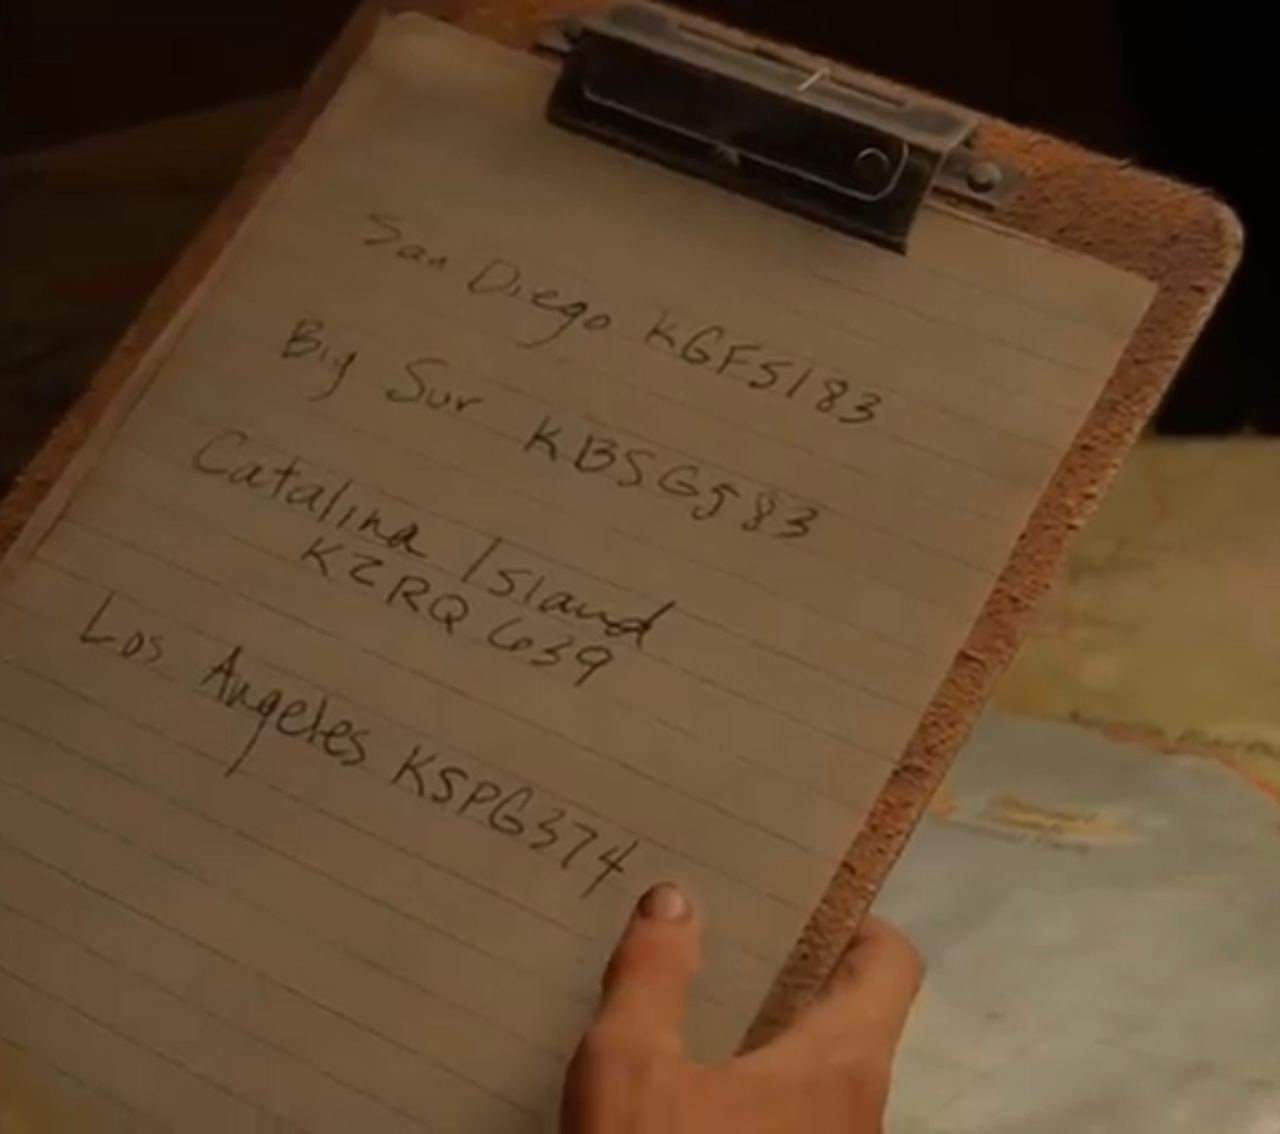 San Diego KGFS183
Big Sur KBSG583
Catalina Island
KZRQ639
Los Angeles KSPG374